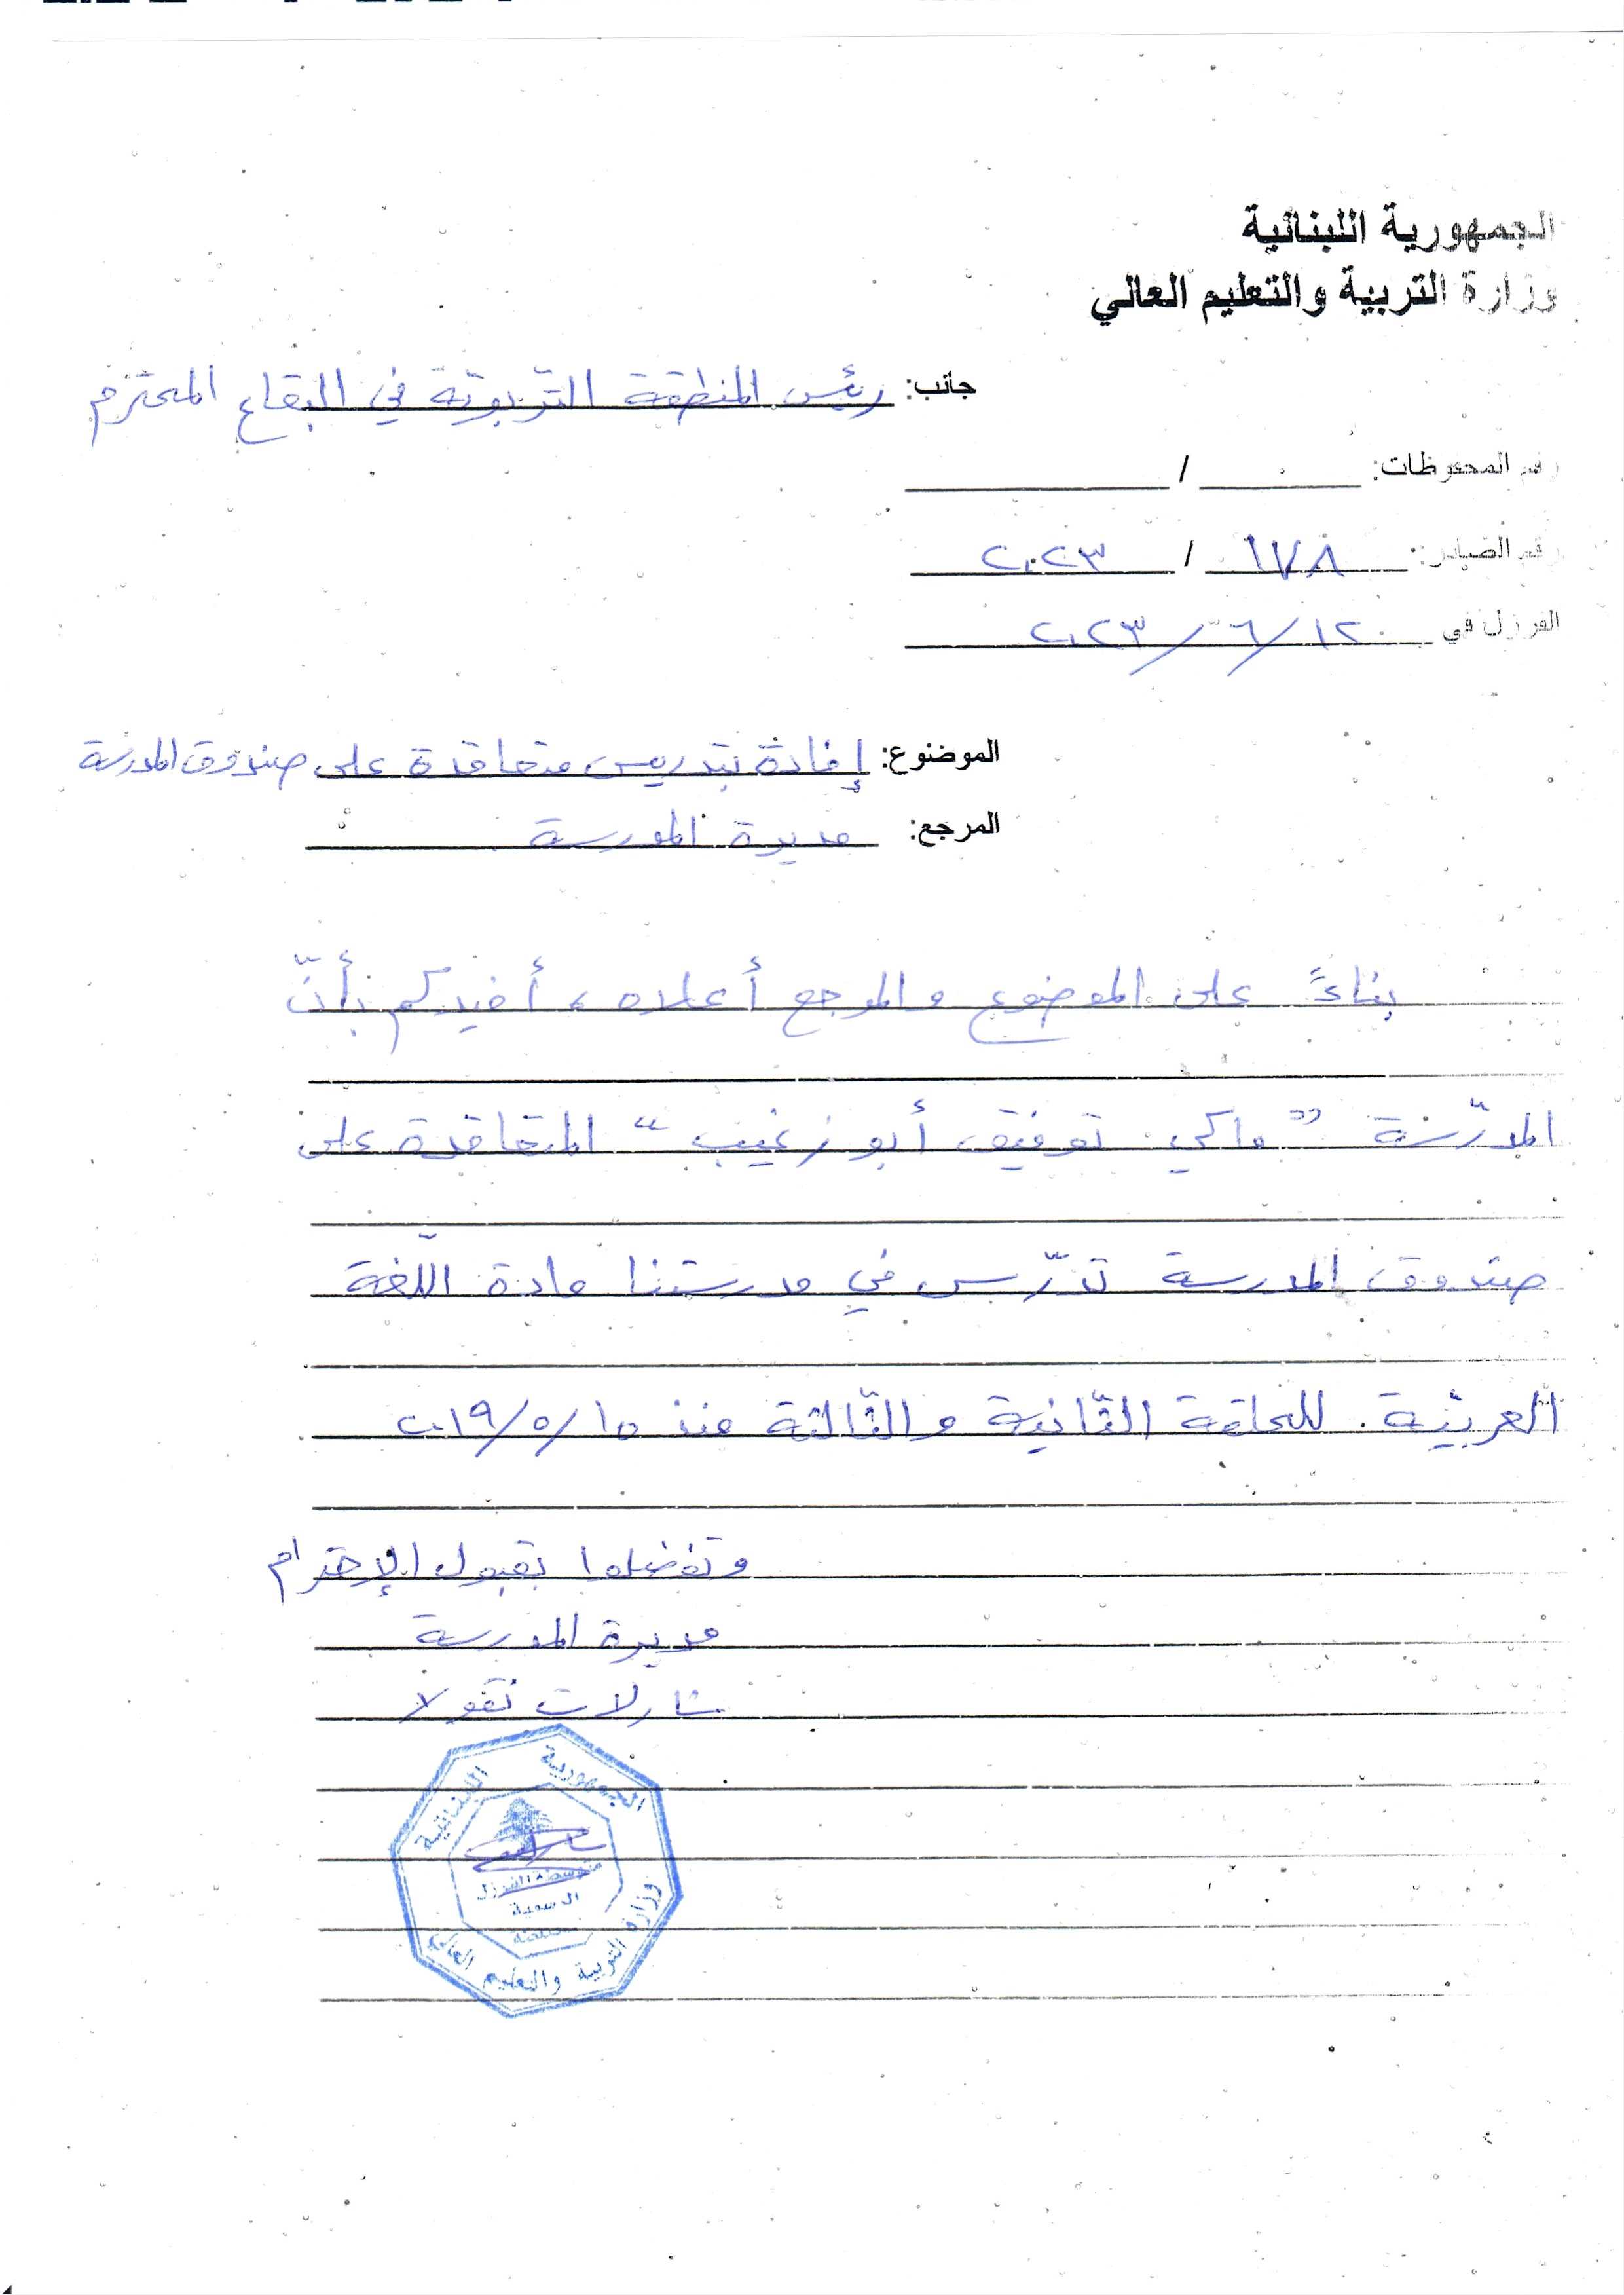 الجمهورية اللبنانية
وزارة التربية والتعليم العالي
جانب: رئيس المنطقة التربوية في البقاع المحترم
رقم المحفوظات: /
رقم الصادر: ١٧٨ / ٢٠٢٣
الفرزل في ١٢/٦/٢٠٢٣
الموضوع: إفادة بتدريس متعاقدة على صندوق المدرسة
المرجع: مديرة المدرسة
بناءً على الموضوع والمرجع أعلاه، أفيدكم بأنّ
المدرّسة "ماكي توفيق أبو زغيب" المتعاقدة على
صندوق المدرسة تدّرس في مدرستنا مادة اللّغة
العربيّة. للحلقة الثّانية والثّالثة منذ ١٥/٥/٢٠١٩
وتفضلوا بقبول الإحترام
مديرة المدرسة
شارلات نقولا
الجمهورية اللبنانية
متوسطة الفرزل
الرسمية
وزارة التربية والتعليم العالي